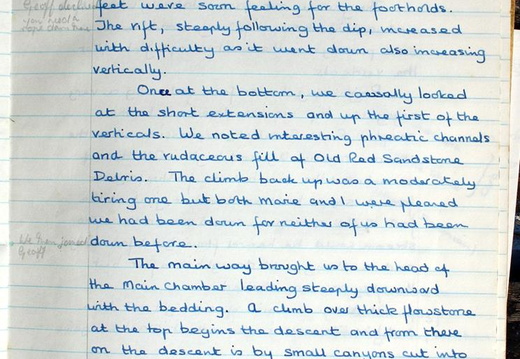 feet were soon feeling for the footholds.
The rift, steeply following the dip, increased
with difficulty as it went down also increasing
vertically.
Once at the bottom, we casually looked
at the short extensions and up the first of the
verticals. We noted interesting phreatic channels
and the rudaceous fill of Old Red Sandstone
Debris. The climb back up was a moderately
tiring one but both Marie and I were pleased
we had been down for neither of us had been
down before.
The main way brought us to the head of
the Main Chamber leading steeply downward
with the bedding. A climb over thick flowstone
at the top begins the descent and from there
on the descent is by small canyons cut into
Geoff
Geoff